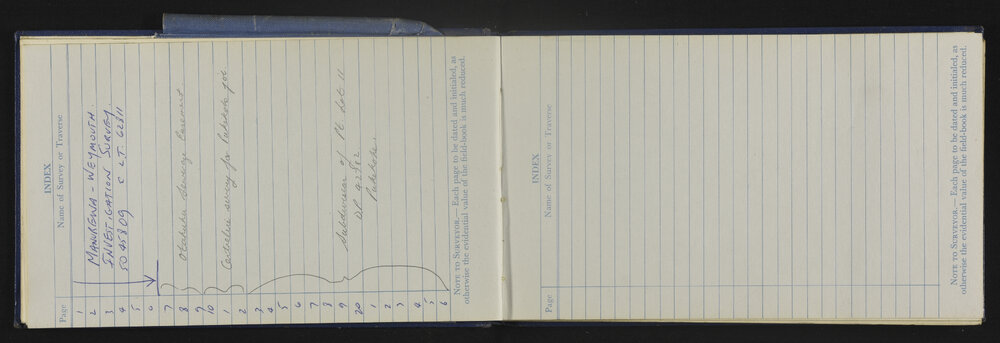 INDEX
Page
Name of Survey or Traverse
1
2 MANREWA - WEYMOUTH.
3 INVESTIGATION SURVEY.
4 5045809 C L.T. 62811
5
6
7
8 Otahuhu Sewerage Easement
9
10
1 Centreline survey for Pukekohe
2
3
4
5
6
7
8
9 Subdivision of Pt Lot 11
20 DP 4382
1 Pukekohe
2
3
4
5
6
NOTE TO SURVEYOR.—Each page to be dated and initialed, as
otherwise the evidential value of the field-book is much reduced.
INDEX
Page
Name of Survey or Traverse
NOTE TO SURVEYOR.—Each page to be dated and initialed, as
otherwise the evidential value of the field-book is much reduced.